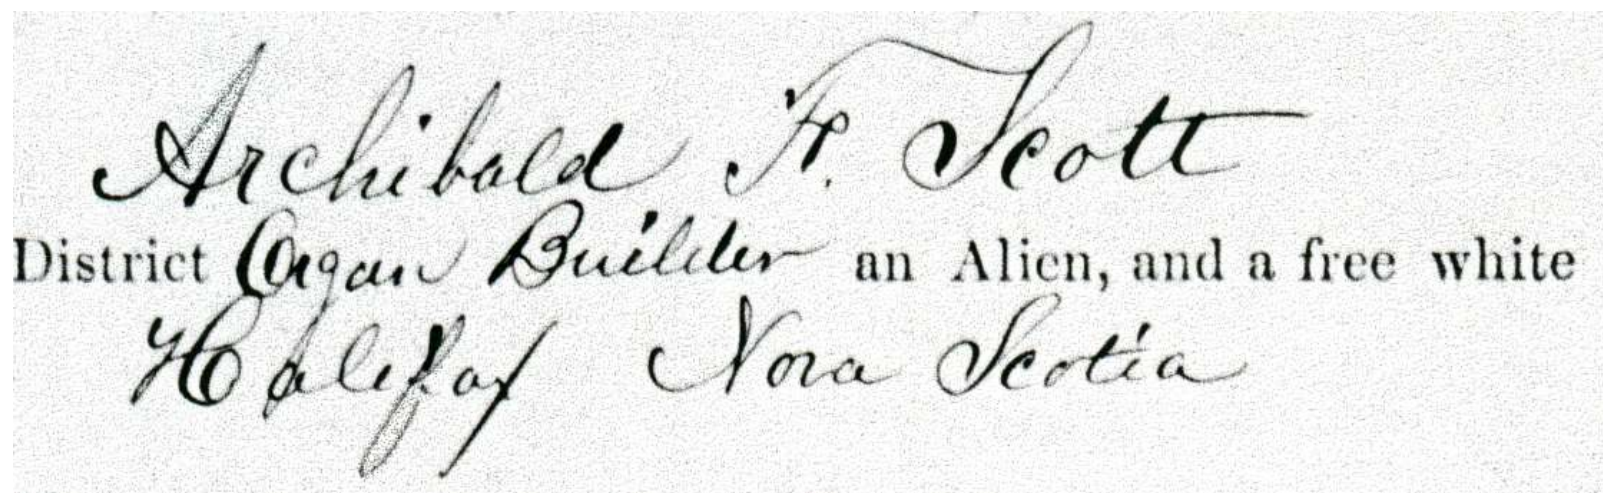 Archibald F. Scott
District Organ Builder an Alien, and a free white
Halifax Nova Scotia